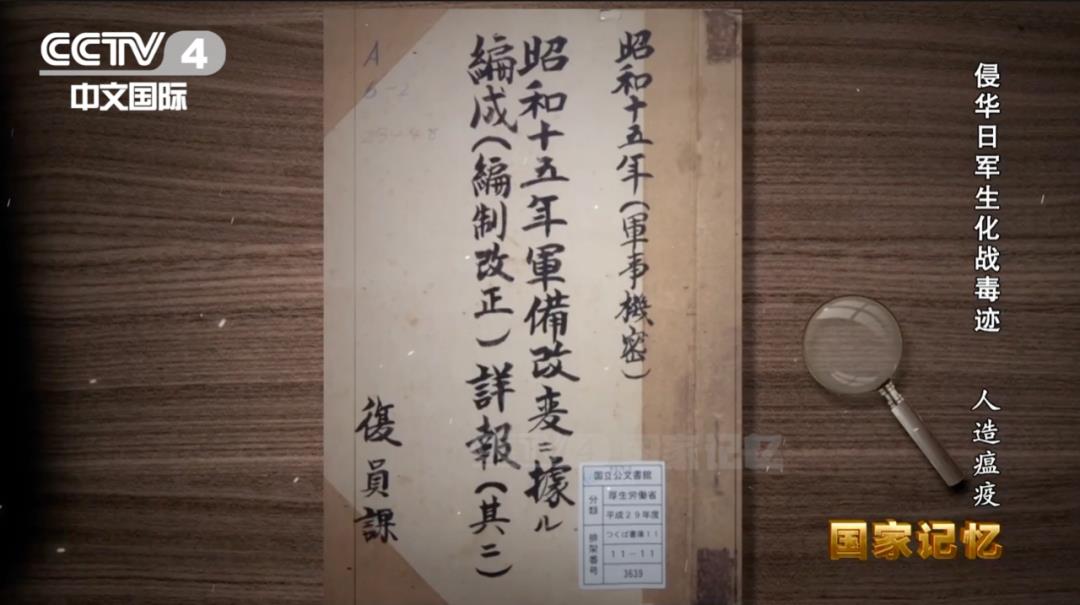 CCTV 4
中文国际
昭和十五年（軍事機密）
昭和十五年軍備改変ニ據ル
編成（編制改正）詳報（其二）
復員課
国立公文書館
分類
厚生労働省
平成29年度
つくば書庫11
排架番号
11-11
3639
侵华日军生化战毒迹
人造瘟疫
国家记忆